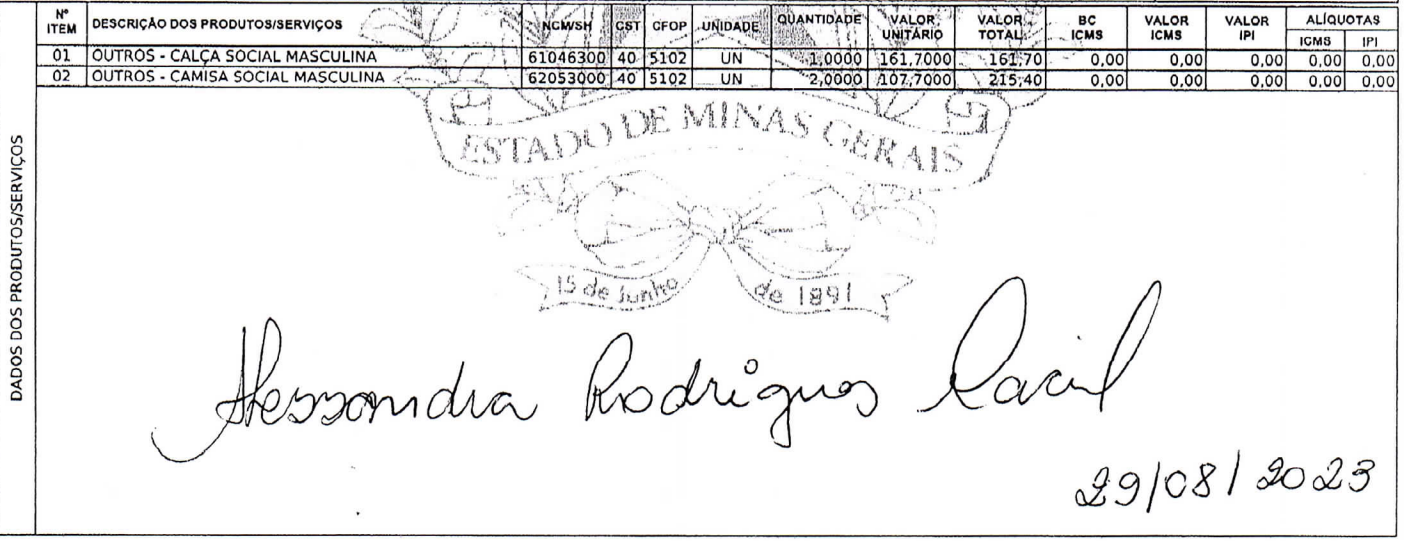 Nº ITEM DESCRIÇÃO DOS PRODUTOS/SERVIÇOS NCM/SH CST CFOP UNIDADE QUANTIDADE VALOR UNITÁRIO VALOR TOTAL BC ICMS VALOR ICMS VALOR IPI ALÍQUOTAS ICMS IPI
01 OUTROS - CALÇA SOCIAL MASCULINA 61046300 40 5102 UN 1,0000 161,7000 161,70 0,00 0,00 0,00 0,00 0,00
02 OUTROS - CAMISA SOCIAL MASCULINA 62053000 40 5102 UN 2,0000 107,7000 215,40 0,00 0,00 0,00 0,00 0,00
DADOS DOS PRODUTOS/SERVIÇOS
ESTADO DE MINAS GERAIS
15 de junho de 1891
Alessandra Rodrigues
29/08/2023